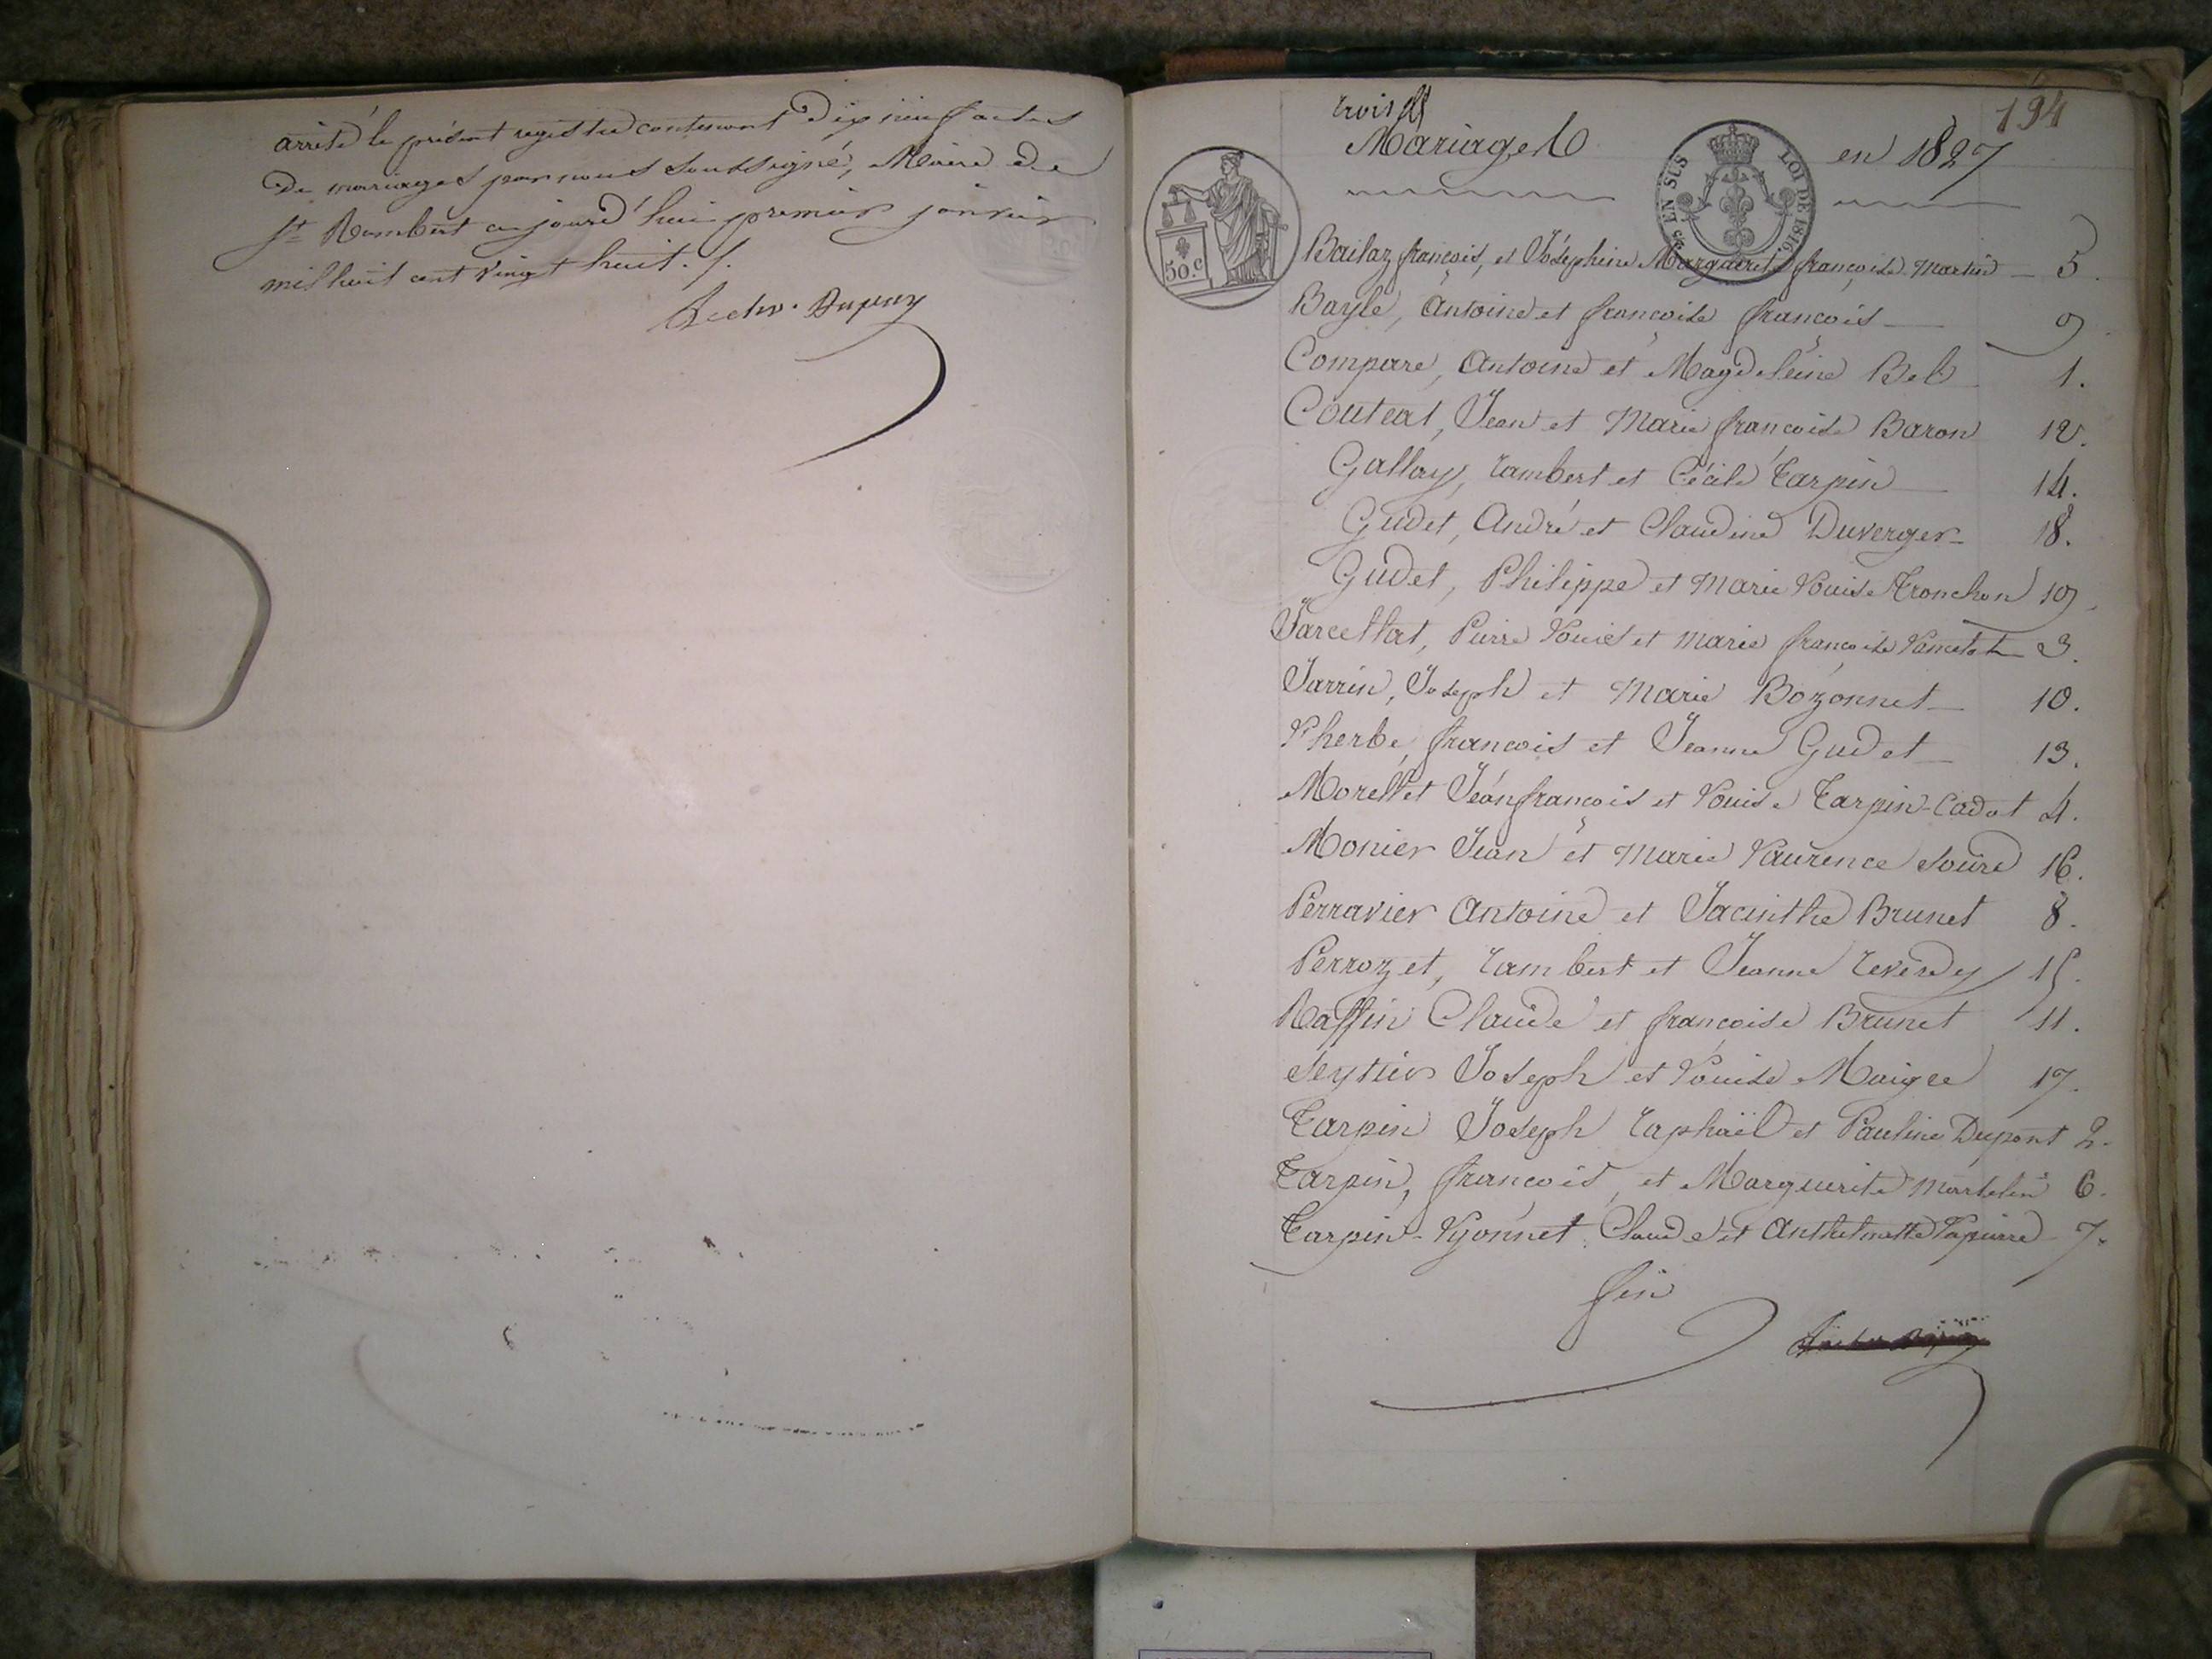 arrêté le présent registre contenant Dix neuf actes
De mariages par nous soussigné, Maire de
St Rambert aujourd'hui premier janvier
mil huit cent vingt huit. /.
Dupuy
194
trois
Mariages en 1827
C/es EN SUS LOI DE 1816.
50.c
Bailaz françois, et Joséphine Marguerite françoise Martin 5.
Bayle, Antoine et françoise françois 9
Compare, Antoine et Magdeleine Bel 1.
Couteat, Jean et Marie françoise Baron 12.
Gallay, rambert et Cécile Tarpin 14.
Gudet, André et Claudine Duverger 18.
Gudet, Philippe et Marie Louise Tronchon 19.
Jarcellat, Pierre Louis et Marie françoise Lancelot 3.
Jarrin, Joseph et Marie Bozonnet 10.
Lherbe, françois et Jeanne Gudet 13.
Morellet Jean françois et Louise Tarpin-Cadot 4.
Monier Jean et Marie Laurence Soure 16.
Perravier Antoine et Jacinthe Brunet 8.
Perrozet, rambert et Jeanne reverdy 15.
Raffin Claude et françoise Brunet 11.
Seytier Joseph et Louise Maigre 17.
Tarpin Joseph raphaël et Pauline Dupont 2.
Tarpin, françois, et Marguerite Martelin 6.
Tarpin-Lyonnet Claude et Anthelmette Lapierre 7.
fin